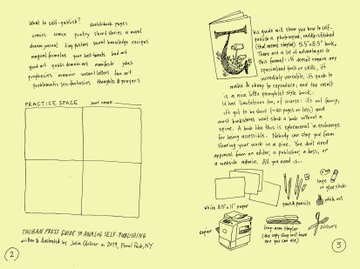 What to self-publish? sketchbook pages
comics zines poetry short stories a novel
dream journal tiny posters secret knowledge recipes
magical formulas your best bands bad art
good art public domain manifesto jokes
prophecies memoir unsent letters fan art
problematic sex fantasies thoughts & prayers
PRACTICE SPACE your name:
THURBAN PRESS GUIDE TO ANALOG SELF-PUBLISHING
written & illustrated by Julia Gfrörer in 2019, Floral Park, NY
2
This guide will show you how to self-
publish a photocopied, saddle-stitched
(that means stapled) 5.5"x8.5" book.
There are a lot of advantages to
this format: it doesn't require any
specialized tools or skills, it
incredibly versatile, it's quick to
make & cheap to reproduce, and the result
is a nice little ephemeral-style book.
It has limitations too, of course: it's not fancy,
it's got to be short (~40 pages or less) and
most bookstores won't stock a book without a
spine. A book like this is ephemeral in exchange
for being accessible. Nobody can stop you from
sharing your work as a zine. You don't need
approval from an editor, a publisher, a boss, or
a website admin. All you need is...
white 8.5"x11" paper
pens & pencils
tape
or glue stick
white out
copier
long-arm stapler
(the copy shop will have
one you can use)
scissors
3